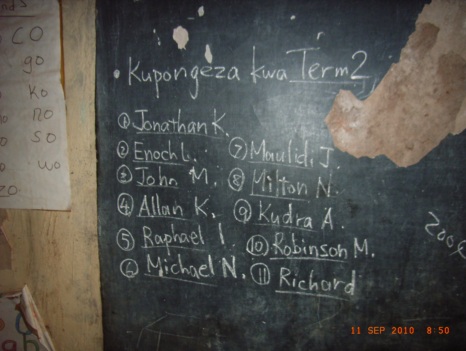 co
go
ko
no
so
wo
zo
• Kupongeza kwa Term 2
① Jonathan K.
② Enoch L.
③ John M.
④ Allan K.
⑤ Raphael I.
⑥ Michael N.
⑦ Maulidi J.
⑧ Milton N.
⑨ Kudra A.
⑩ Robinson M.
⑪ Richard
11 SEP 2010 8:50